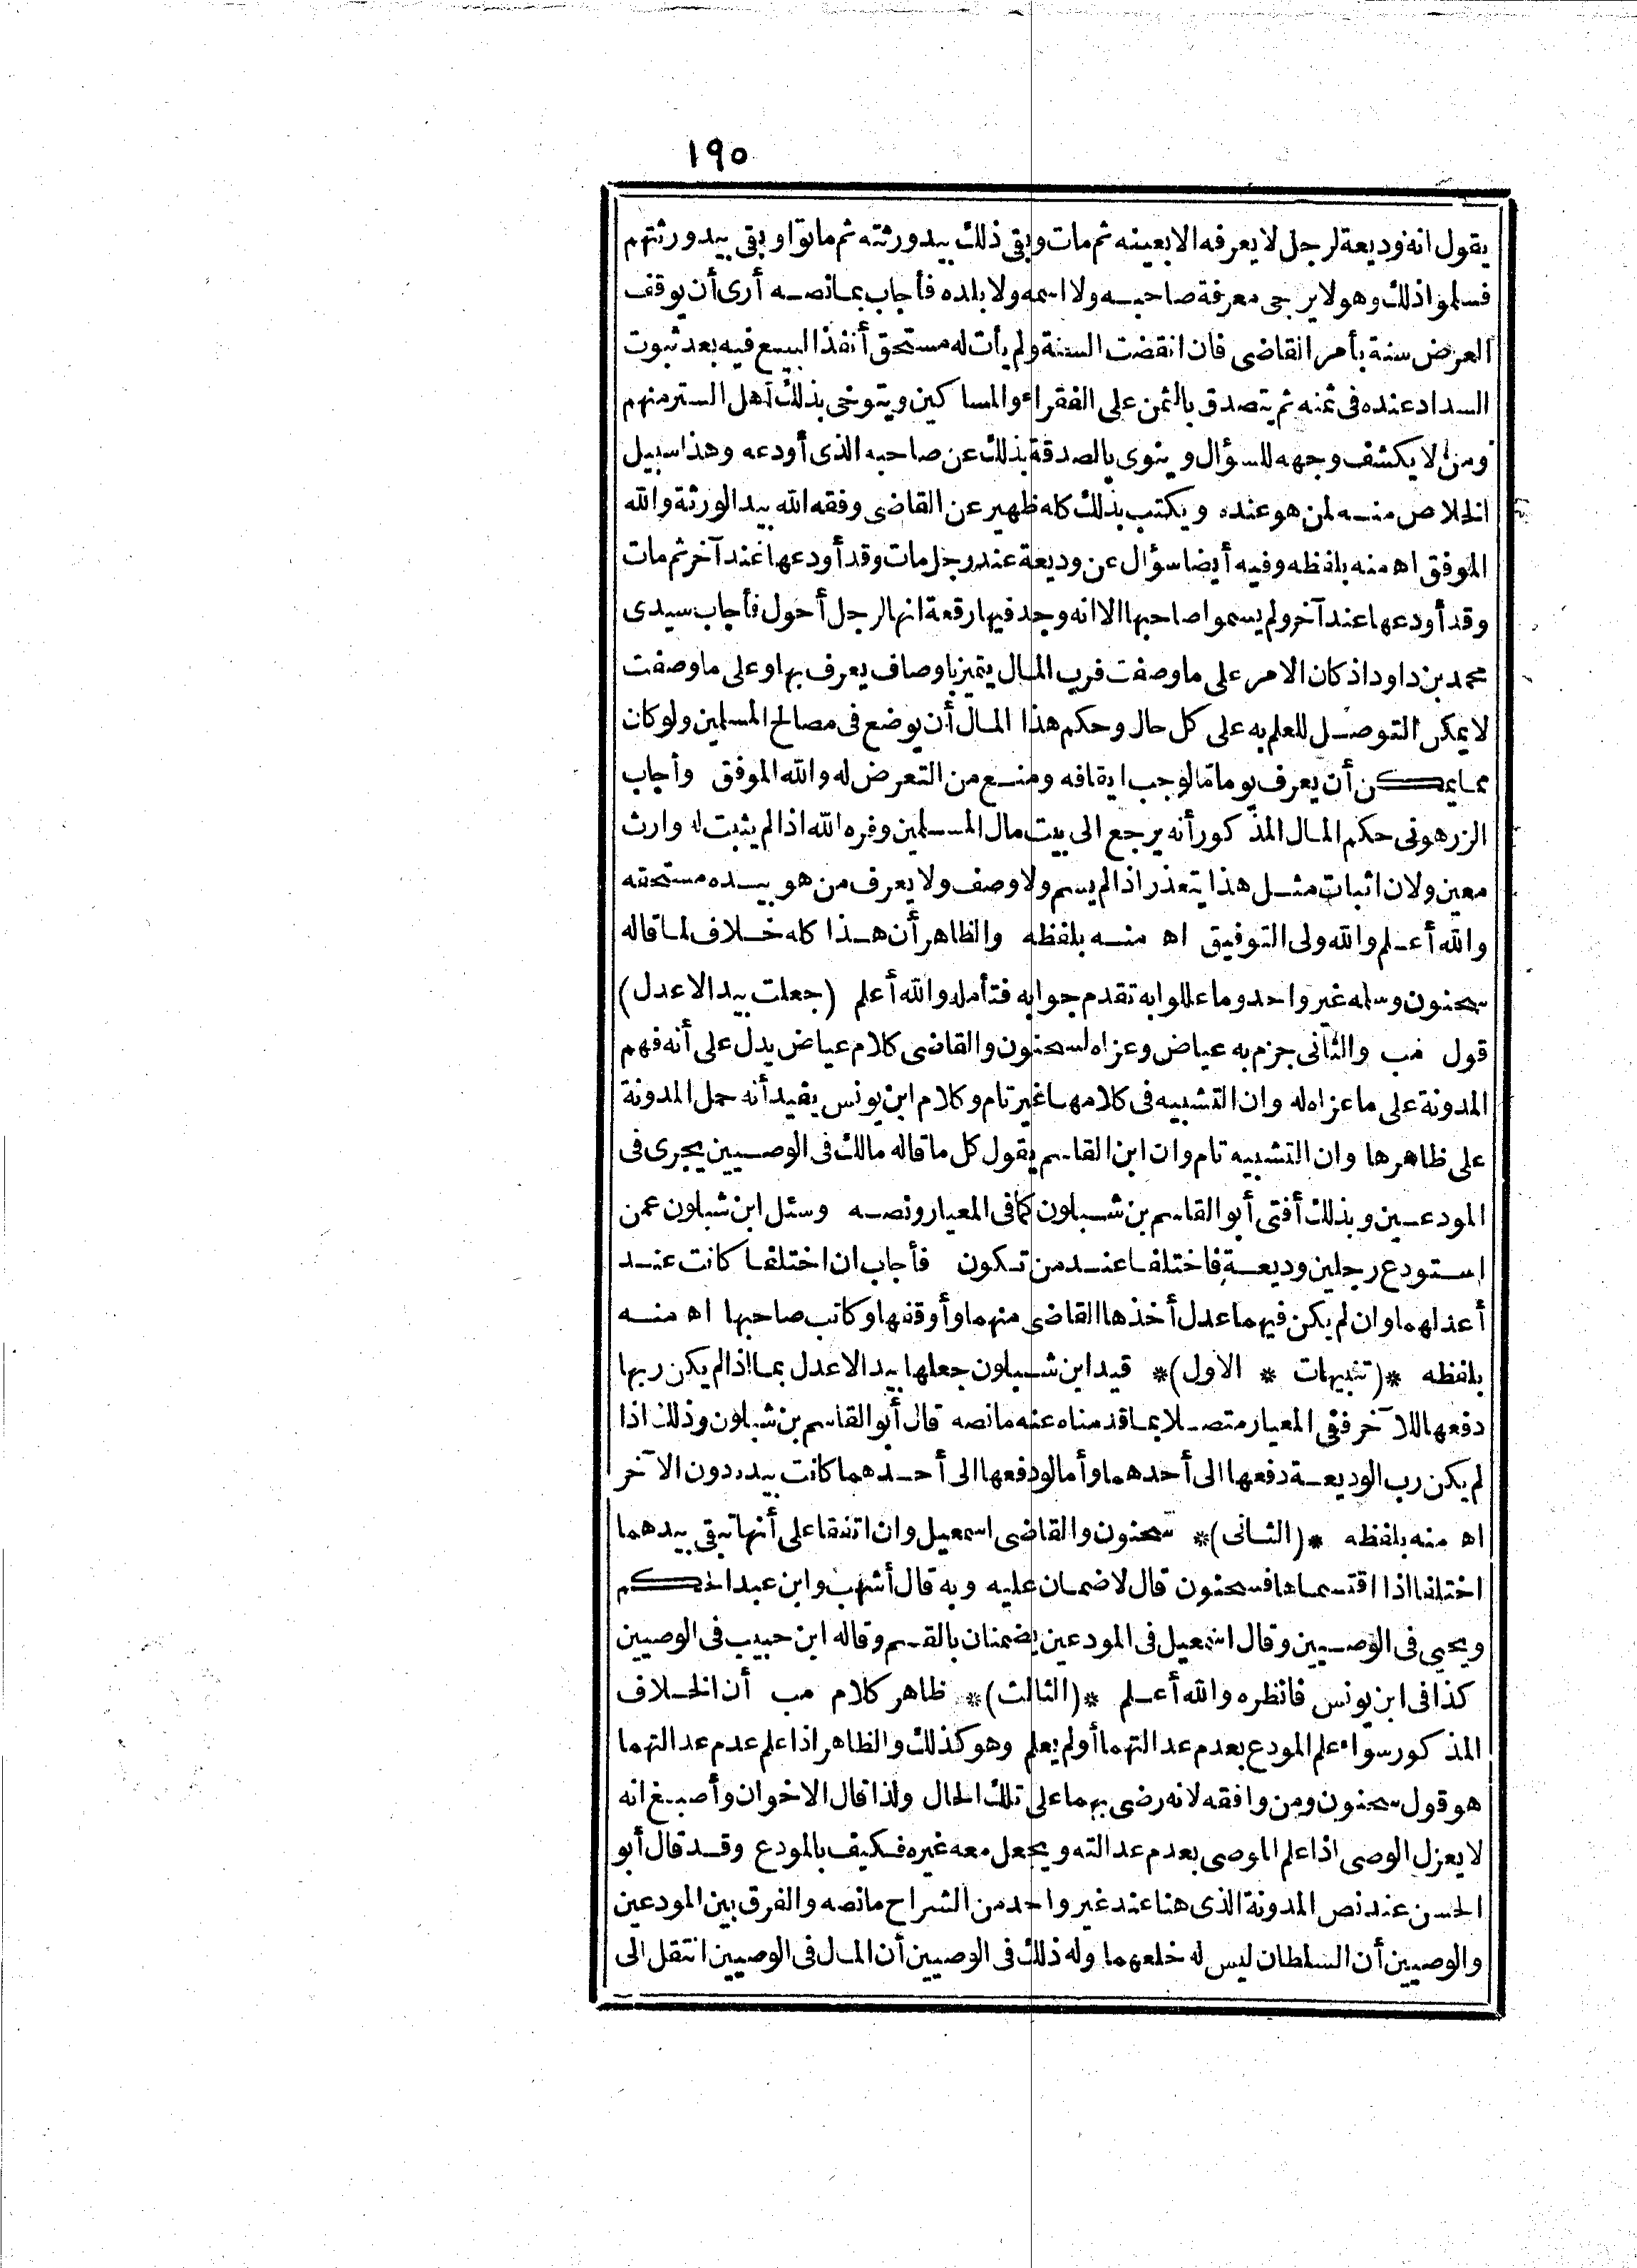 ١٩٥
يقول انه وديعة لرجل لا يعرفه الا بعينه ثم مات وبقى ذلك بيد ورثته ثم ماتوا وبقى بيد ورثتهم
فسلموا ذلك وهو لا يرجى معرفة صاحبه ولا اسمه ولا بلده فأجاب بما نصه أرى أن يوقف
العرض سنة بأمر القاضى فان انقضت السنة ولم يأت له مستحق أنفذ البيع فيه بعد ثبوت
السداد عنده فى ثمنه ثم يتصدق بالثمن على الفقراء والمساكين ويتوخى بذلك أهل الستر منهم
ومن لا يكشف وجهه للسؤال وينوى بالصدقة بذلك عن صاحبه الذى أودعه وهذا سبيل
الخلاص منه لمن هو عنده ويكتب بذلك كله ظهير عن القاضى وفقه الله بيد الورثة والله
الموفق اه منه بلفظه وفيه أيضا سؤال عن وديعة عند رجل مات وقد أودعها عند آخر ثم مات
وقد أودعها عند آخر ولم يسموا صاحبها الا انه وجد فيها رقعة انها لرجل أحول فأجاب سيدى
محمد بن داود اذ كان الامر على ما وصفت فرب المال يتميز باوصاف يعرف بها وعلى ما وصفت
لا يمكن التوصل للعلم به على كل حال وحكم هذا المال أن يوضع فى مصالح المسلمين ولو كان
مما يمكن أن يعرف يوما مّا لوجب ايقافه ومنع من التعرض له والله الموفق وأجاب
الزرهونى حكم المال المذكور أنه يرجع الى بيت مال المسلمين وفره الله اذا لم يثبت له وارث
معين ولان اثبات مثل هذا يتعذر اذا لم يسم ولا وصف ولا يعرف من هو بيده مستحقه
والله أعلم والله ولى التوفيق اه منه بلفظه والظاهر أن هذا كله خلاف لما قاله
سحنون وسلمه غير واحد وما عللوا به تقدم جوابه فتأمله والله أعلم (جعلت بيد الاعدل)
قول مب والثانى جزم به عياض وعزاه لسحنون والقاضى كلام عياض يدل على أنه فهم
المدونة على ما عزاه له وان التشبيه فى كلامها غير تام وكلام ابن يونس يفيد أنه حمل المدونة
على ظاهرها وان التشبيه تام وان ابن القاسم يقول كل ما قاله مالك فى الوصيين يجرى فى
المودعين وبذلك أفتى أبو القاسم بن شبلون كما فى المعيار ونصه وسئل ابن شبلون عمن
استودع رجلين وديعة فاختلفا عند من تكون فأجاب ان اختلفا كانت عند
أعدلهما وان لم يكن فيهما عدل أخذها القاضى منهما وأوقفها وكاتب صاحبها اه منه
بلفظه *(تنبيهات * الاول)* قيد ابن شبلون جعلها بيد الاعدل بما اذا لم يكن ربها
دفعها للآخر ففى المعيار متصلا بما قدمناه عنه ما نصه قال أبو القاسم بن شبلون وذلك اذا
لم يكن رب الوديعة دفعها الى أحدهما وأما لو دفعها الى أحدهما كانت بيده دون الآخر
اه منه بلفظه *(الثانى)* سحنون والقاضى اسمعيل وان اتفقا على أنها تبقى بيدهما
اختلفا اذا اقتسماها فسحنون قال لا ضمان عليه وبه قال أشهب وابن عبد الحكم
ويحيى فى الوصيين وقال اسمعيل فى المودعين يضمنان بالقسم وقاله ابن حبيب فى الوصيين
كذا فى ابن يونس فانظره والله أعلم *(الثالث)* ظاهر كلام مب أن الخلاف
المذكور سواء علم المودع بعدم عدالتهما أو لم يعلم وهو كذلك والظاهر اذا علم عدم عدالتهما
هو قول سحنون ومن وافقه لانه رضى بهما على تلك الحال ولذا قال الاخوان وأصبغ انه
لا يعزل الوصى اذا علم الموصى بعدم عدالته ويجعل معه غيره فكيف بالمودع وقد قال أبو
الحسن عند نص المدونة الذى هنا عند غير واحد من الشراح ما نصه والفرق بين المودعين
والوصيين أن السلطان ليس له خلعهما وله ذلك فى الوصيين أن المال فى الوصيين انتقل الى